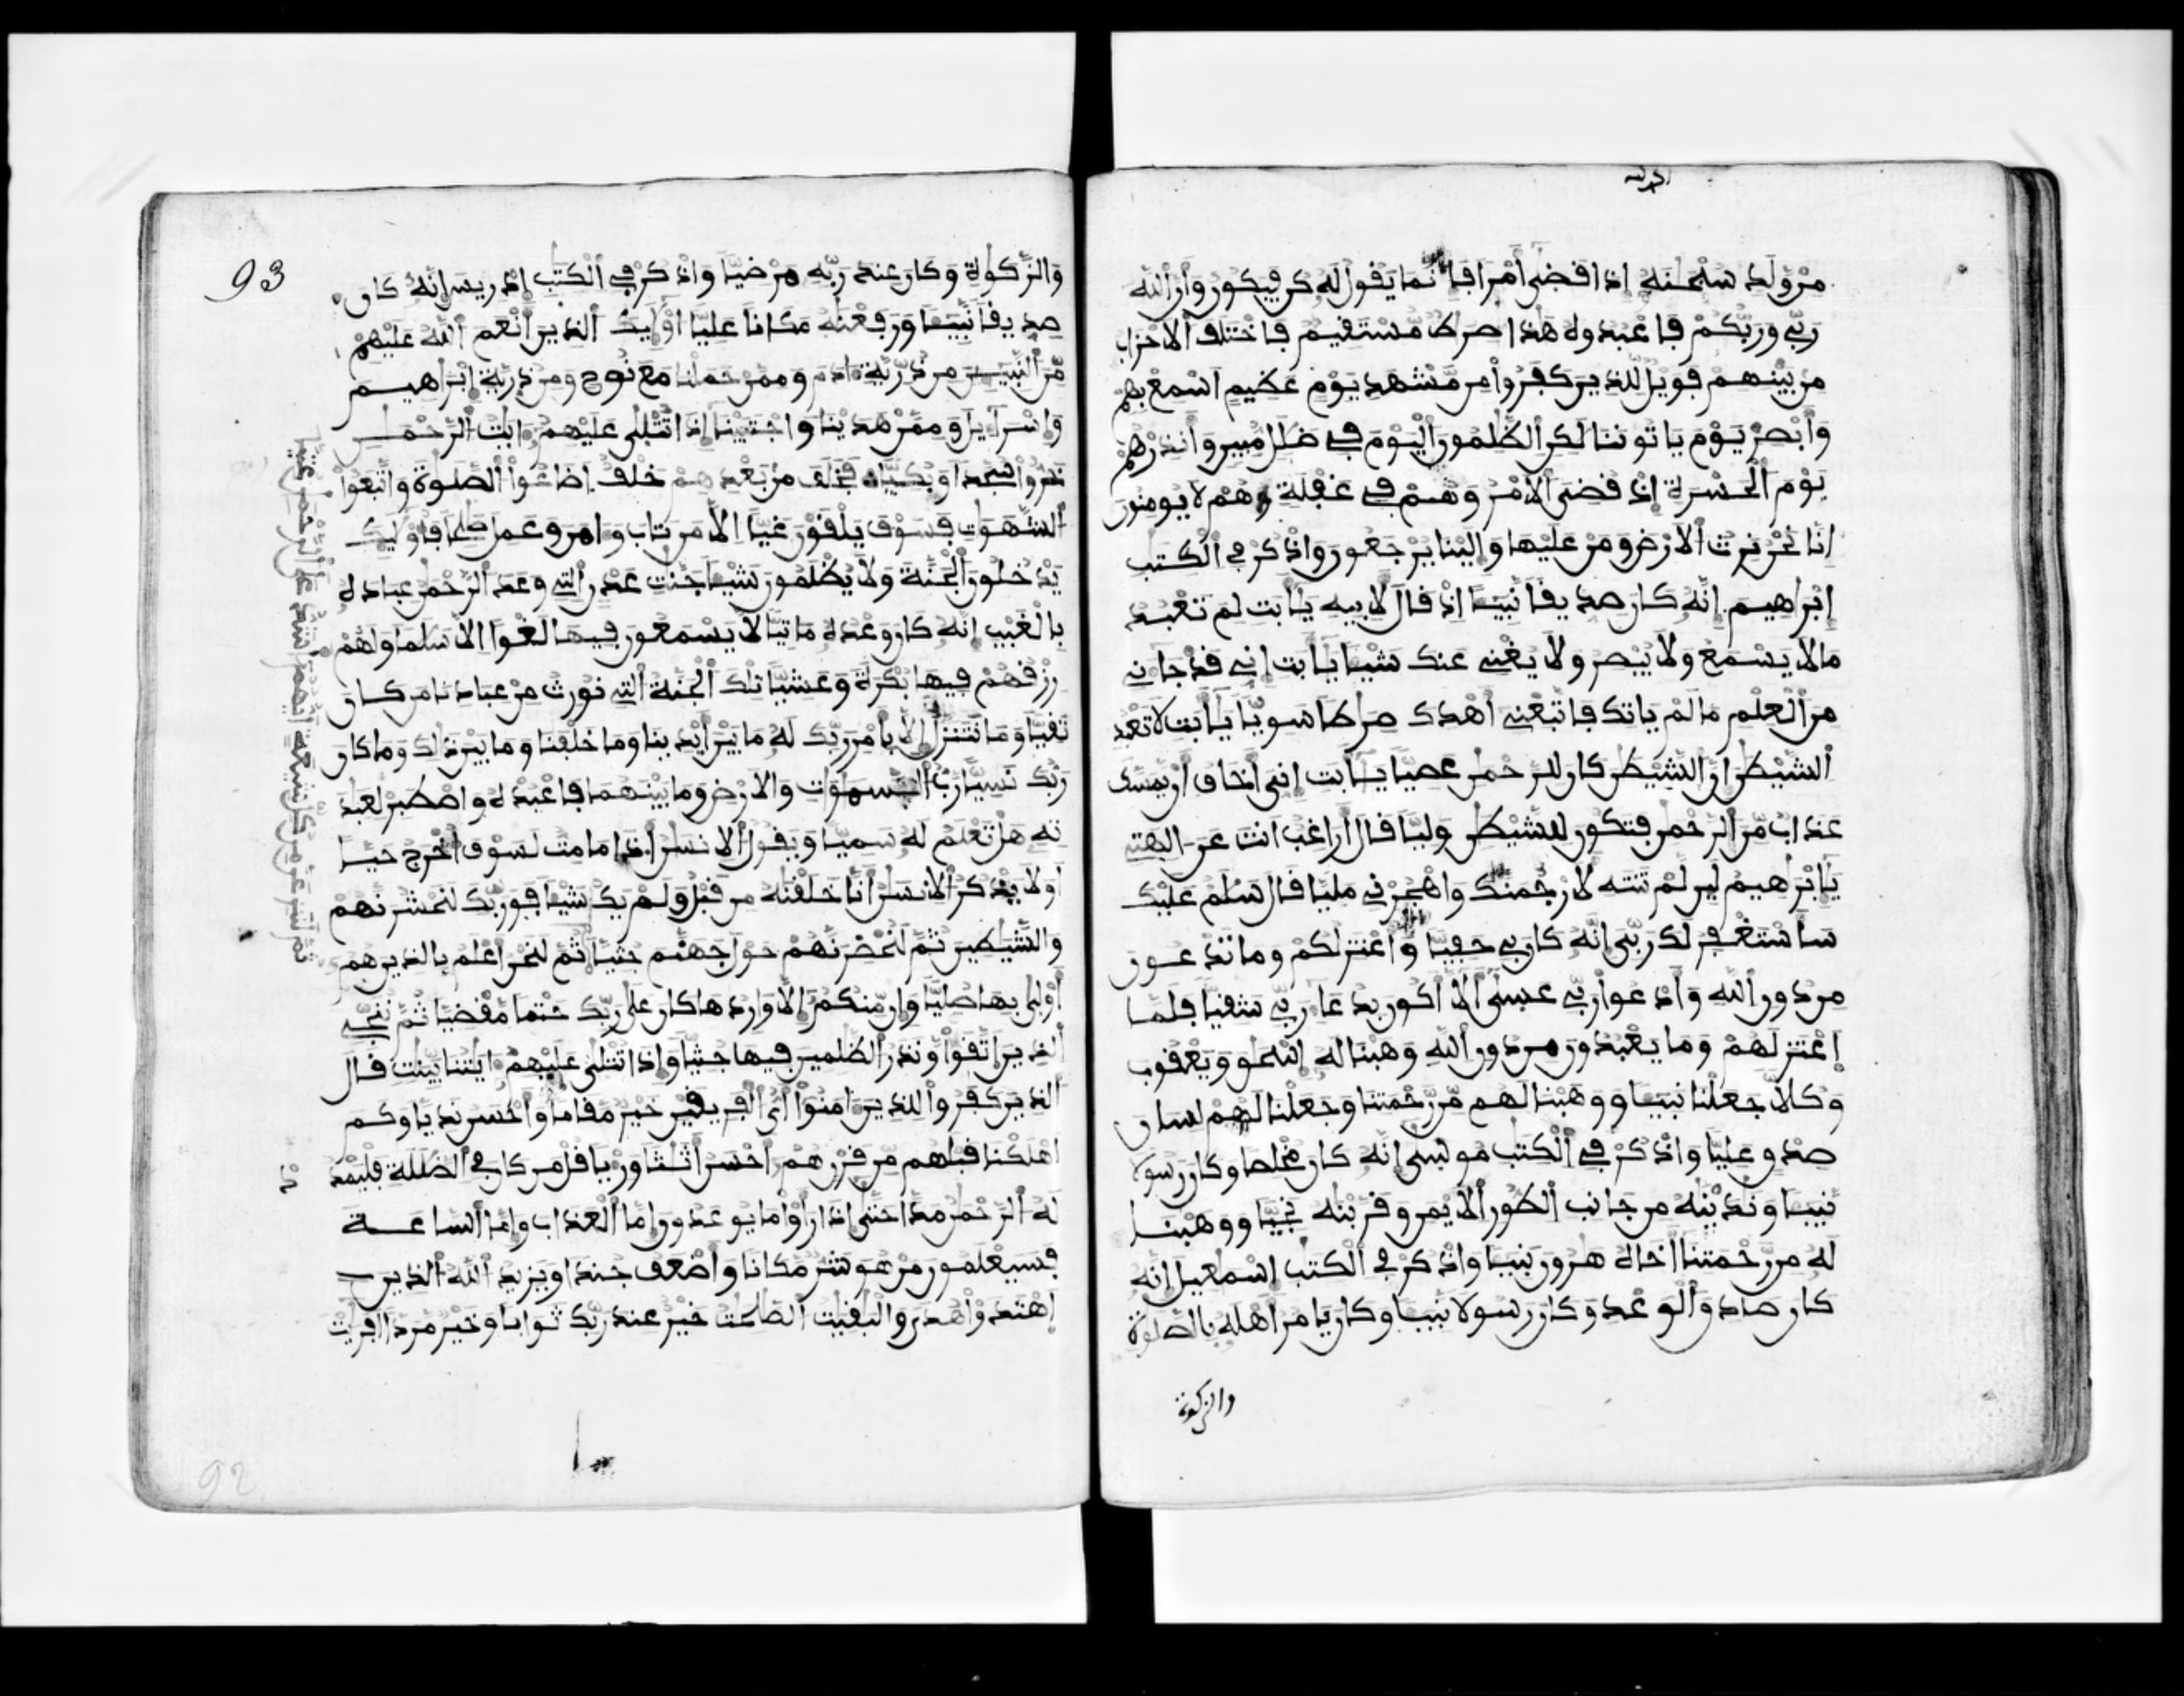 من ولد سبحنه اذا قضى أمرا فإنما يقول له كن فيكون وأن الله
ربي وربكم فاعبدوه هذا صرط مستقيم فاختلف الاحزاب
من بينهم فويل للذين كفروا من مشهد يوم عظيم اسمع بهم
وأبصر يوم ياتوننا لكن الظلمون اليوم في ضلل مبين وأنذرهم
يوم الحسرة إذ قضي الامر وهم في غفلة وهم لا يومنون
إنا نحن نرث الارض ومن عليها وإلينا يرجعون واذكر في الكتب
إبراهيم إنه كان صديقا نبيئا إذ قال لابيه يأبت لم تعبد
مالا يسمع ولا يبصر ولا يغني عنك شيئا يأبت إني قد جاني
من العلم ما لم ياتك فاتبعني أهدك صرطا سويا يأبت لا تعبد
الشيطن إن الشيطن كان للرحمن عصيا يأبت اني أخاف أن يمسك
عذاب من الرحمن فتكون للشيطن وليا قال أراغب انت عن الهتي
يإبراهيم لين لم تنته لارجمنك واهجرني مليا قال سلم عليك
سأستغفر لك ربي إنه كان بي حفيا وأعتزلكم وما تدعون
من دون الله وأدعوا ربي عسى ألا أكون بدعا ربي شقيا فلما
إعتزلهم وما يعبدون من دون الله وهبنا له إسحق ويعقوب
وكلا جعلنا نبيئا ووهبنا لهم من رحمتنا وجعلنا لهم لسان
صدق عليا واذكر في الكتب موسى إنه كان مخلصا وكان رسولا
نبيئا وندينه من جانب الطور الايمن وقربنه نجيا ووهبنا
له من رحمتنا أخاه هرون نبيئا واذكر في الكتب إسمعيل إنه
كان صادق الوعد وكان رسولا نبيئا وكان يامر أهله بالصلوة
والزكوة
93
والزكوة وكان عند ربه مرضيا واذكر في الكتب إدريس إنه كان
صديقا نبيئا ورفعنه مكانا عليا أوليك الذين أنعم الله عليهم
من النبيين من ذرية ادم وممن حملنا مع نوح ومن ذرية إبراهيم
وإسرايل وممن هدينا واجتبينا إذا تتلى عليهم ايت الرحمن
خروا سجدا وبكيا فخلف من بعدهم خلف اضاعوا الصلوة واتبعوا
الشهوت فسوف يلقون غيا الا من تاب وامن وعمل صلحا فأوليك
يدخلون الجنة ولا يظلمون شيئا جنت عدن التي وعد الرحمن عباده
بالغيب إنه كان وعده ماتيا لا يسمعون فيها لغوا الا سلما ولهم
رزقهم فيها بكرة وعشيا تلك الجنة التي نورث من عبادنا من كان
تقيا وما نتنزل إلا بأمر ربك له ما بين أيدينا وما خلفنا وما بين ذلك وما كان
ربك نسيا رب السموات والارض وما بينهما فاعبده واصطبر لعبد
ته هل تعلم له سميا ويقول الانسن أ.ذا ما مت لسوف أخرج حيا
أولا يذكر الانسن أنا خلقنه من قبل ولم يك شيئا فوربك لنحشرنهم
والشيطين ثم لنحضرنهم حول جهنم جثيا ثم لنحن أعلم بالذين هم
أولى بها صليا وإن منكم إلا واردها كان على ربك حتما مقضيا ثم ننجي
الذين اتقوا ونذر الظلمين فيها جثيا وإذا تتلى عليهم ايتنا بينت قال
الذين كفروا للذين امنوا أي الفريقين خير مقاما وأحسن نديا وكم
اهلكنا قبلهم من قرن هم احسن أثثا وريا قل من كان في الضللة فليمدد
له الرحمن مدا حتى إذا رأوا ما يوعدون إما العذاب وإما الساعة
فسيعلمون من هو شر مكانا وأضعف جندا ويزيد الله الذين
إهتدوا هدى والبقيت الصلحت خير عند ربك ثوابا وخير مردا افريت
ثم لننزعن من كل شيعة أيهم أشد على الرحمن عتيا
92